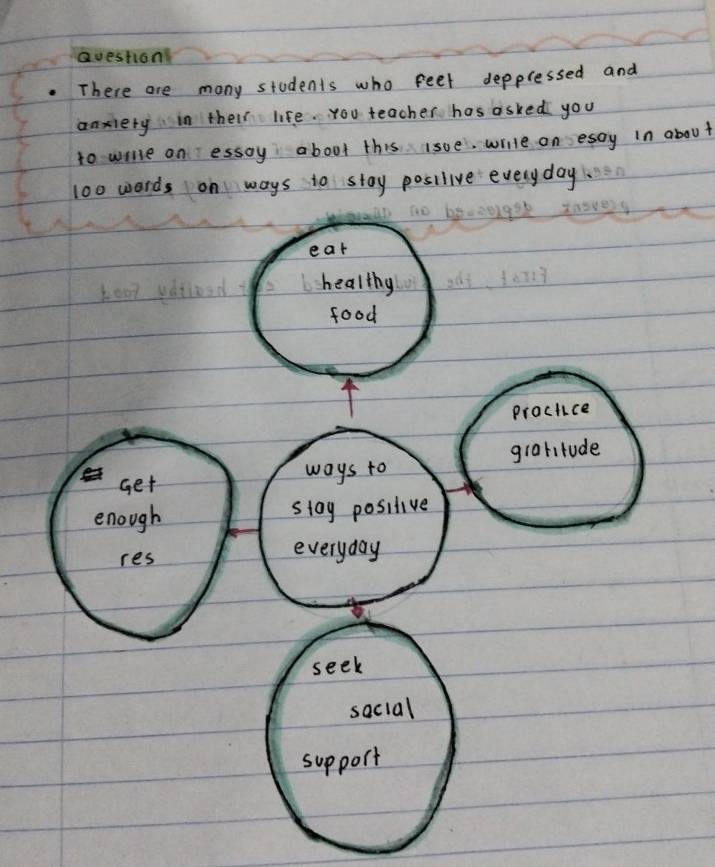 Question
• There are many students who feel deppressed and
anxiety in their life. You teacher has asked you
to write an essay about this isue. write an esay in about
100 words on ways to stay positive everyday.
eat
healthy
food
Practice
gratitude
ways to
stay positive
everyday
Get
enough
res
seek
social
support